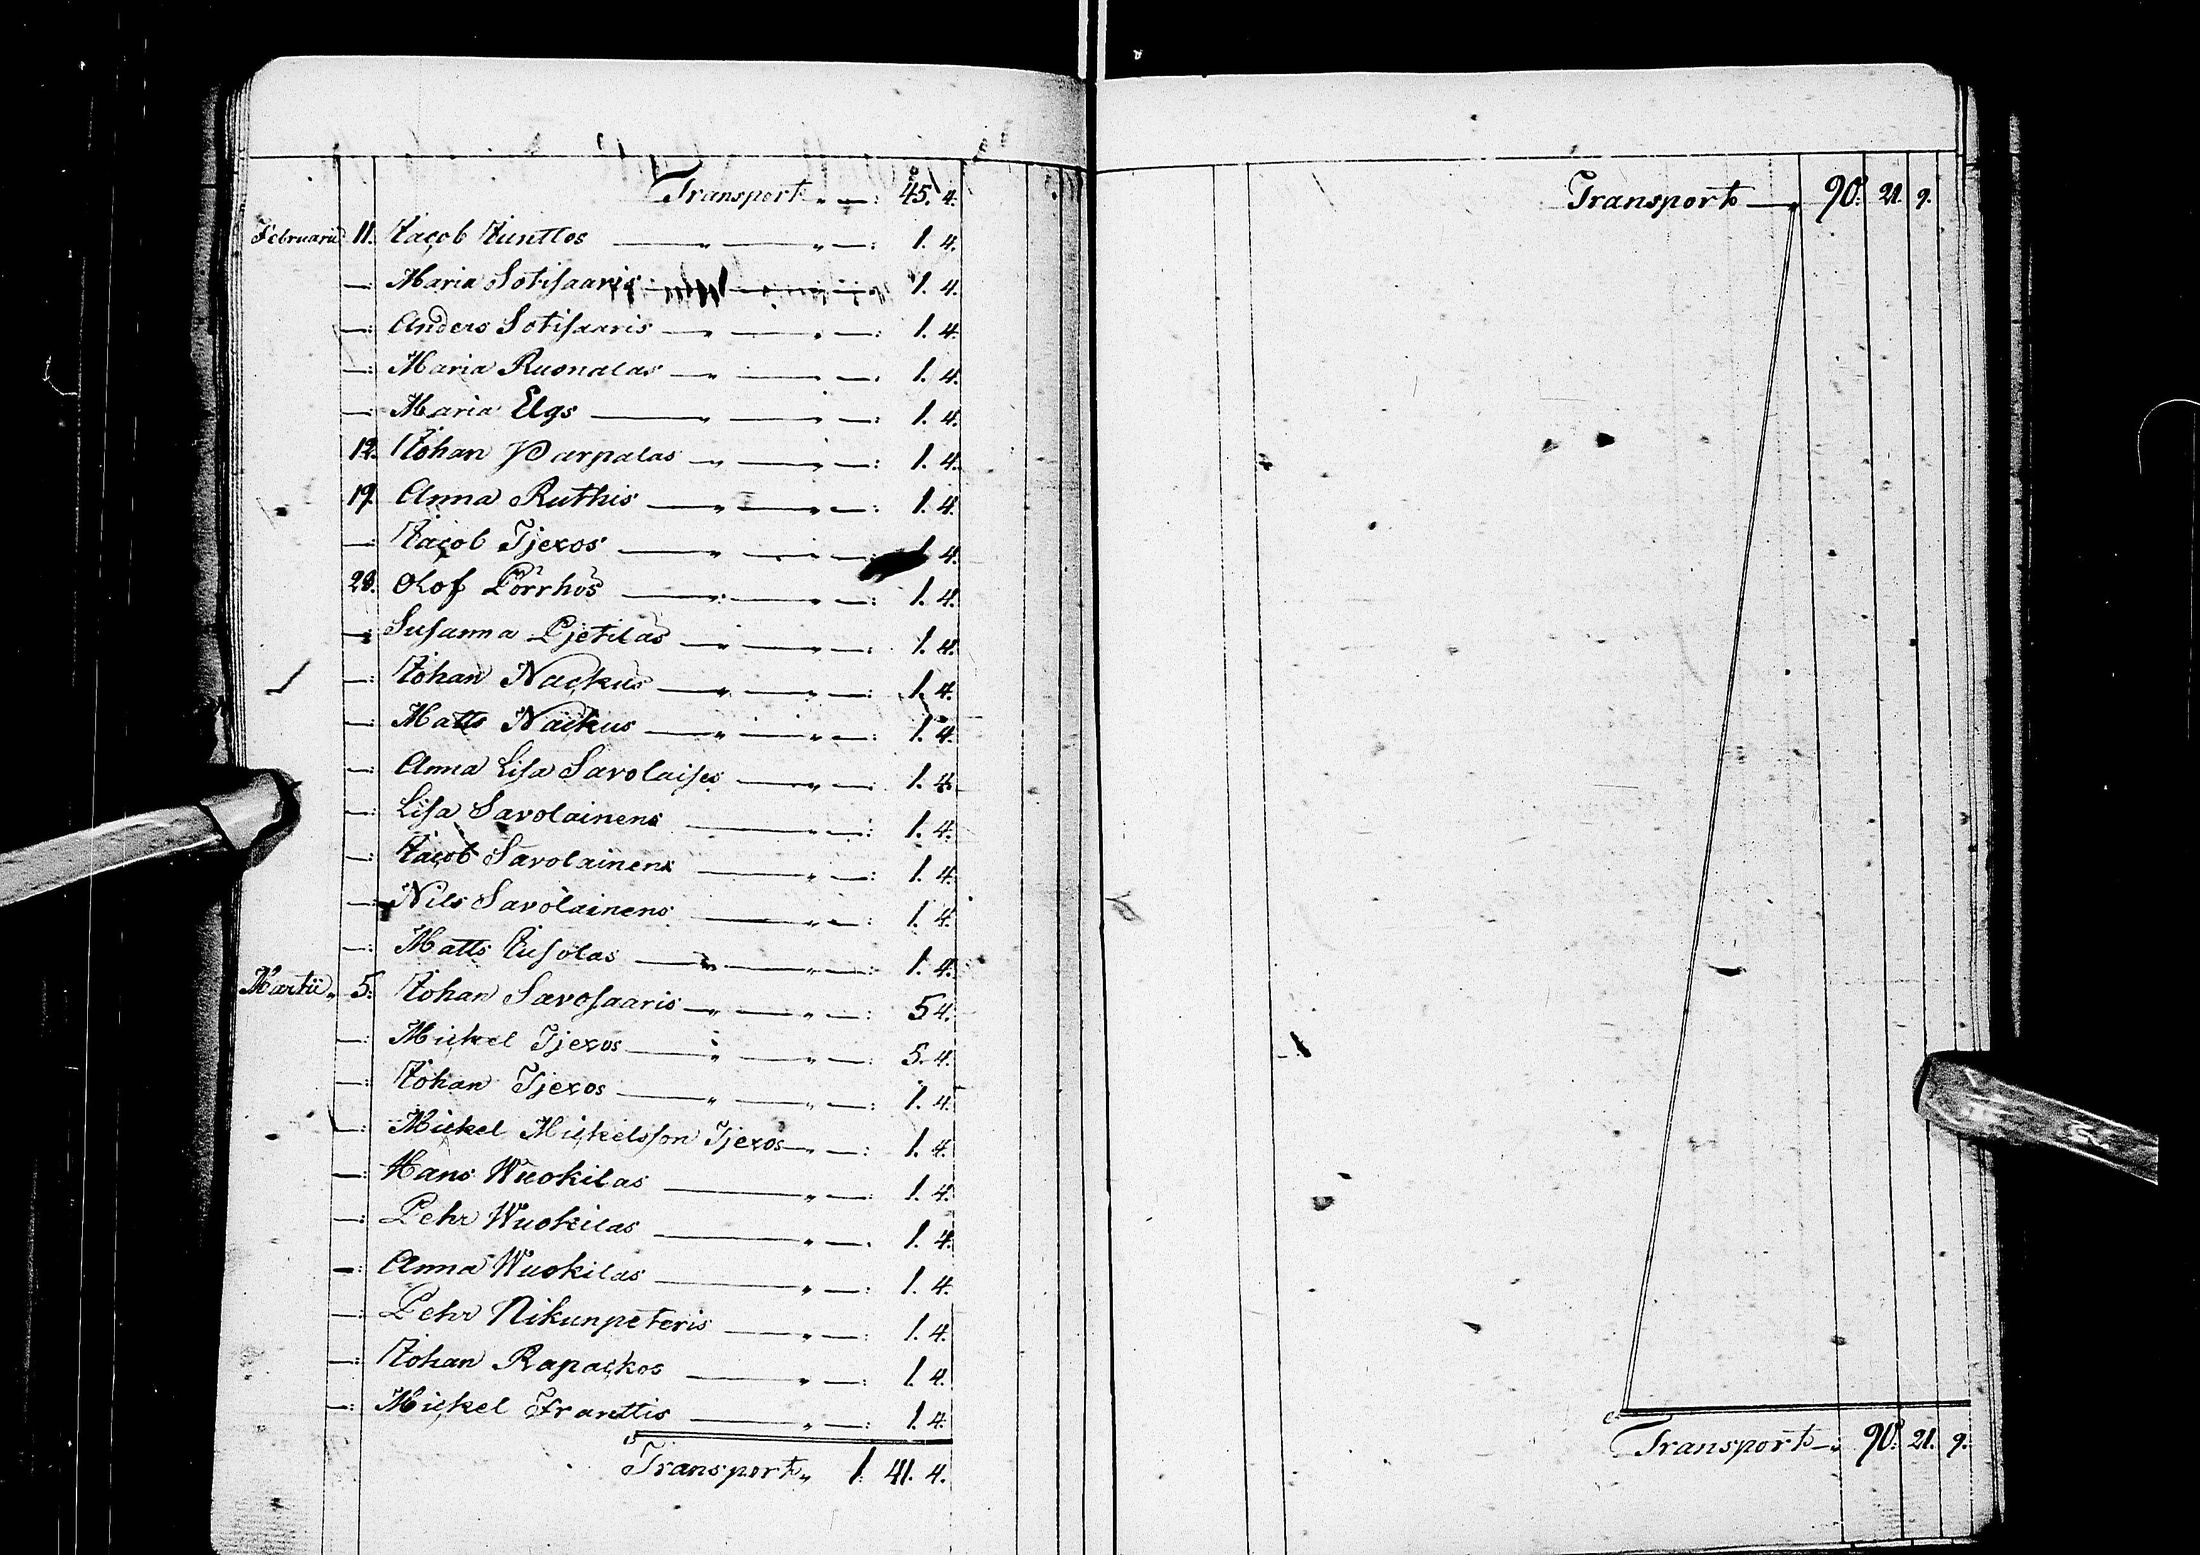 Transport „ — : 45. 4.
Februarii 11. Jacob Junttos — „ — „ — : 1. 4.
— : Maria Sotisaaris — 1. 4.
— : Anders Sotisaaris — „ — „ — : 1. 4.
— : Maria Ruonalas — „ — „ — . 1. 4.
— : Maria Elgs — „ — „ — : 1. 4.
12. Johan Warpalas — „ — „ — : 1. 4.
19. Anna Ruthis — „ — „ — : 1. 4.
— : Jacob Tjeros — „ — „ — 1. 4.
28. Olof Pörrhös — „ — „ — : 1. 4.
— : Susanna Pjetilas — „ — „ — : 1. 4.
— : Johan Nackus — „ — „ — : 1. 4.
— : Matts Nackus — „ — „ — : 1. 4.
— : Anna Lisa Savolaises — „ — : 1. 4.
— : Lisa Savolainens — „ — : 1. 4.
— : Jacob Savolainens — „ — : 1. 4.
— : Nils Savolainens — „ — : 1. 4.
— : Matts Jusolas — „ — „ — : 1. 4.
Martii „ 5. Johan Savosaaris — „ — „ — : 5 4.
— : Mickel Tjeros — „ — „ — : 5. 4.
— : Johan Tjeros — „ — „ — : 1. 4.
— : Mickel Mickelsson Tjeros — „ — : 1. 4.
— : Hans Wuokilas — „ — : 1. 4.
— : Pehr Wuokilas — „ — : 1. 4.
— : Anna Wuokilas — „ — : 1. 4.
— : Pehr Nikunpeteris — „ — : 1. 4.
— : Johan Rapackos — „ — : 1. 4.
— : Mickel Franttis — „ — : 1. 4.
Transport „ 1. 41. 4.
Transport — „ 90. 21. 9.
Transport — „ 90. 21. 9.